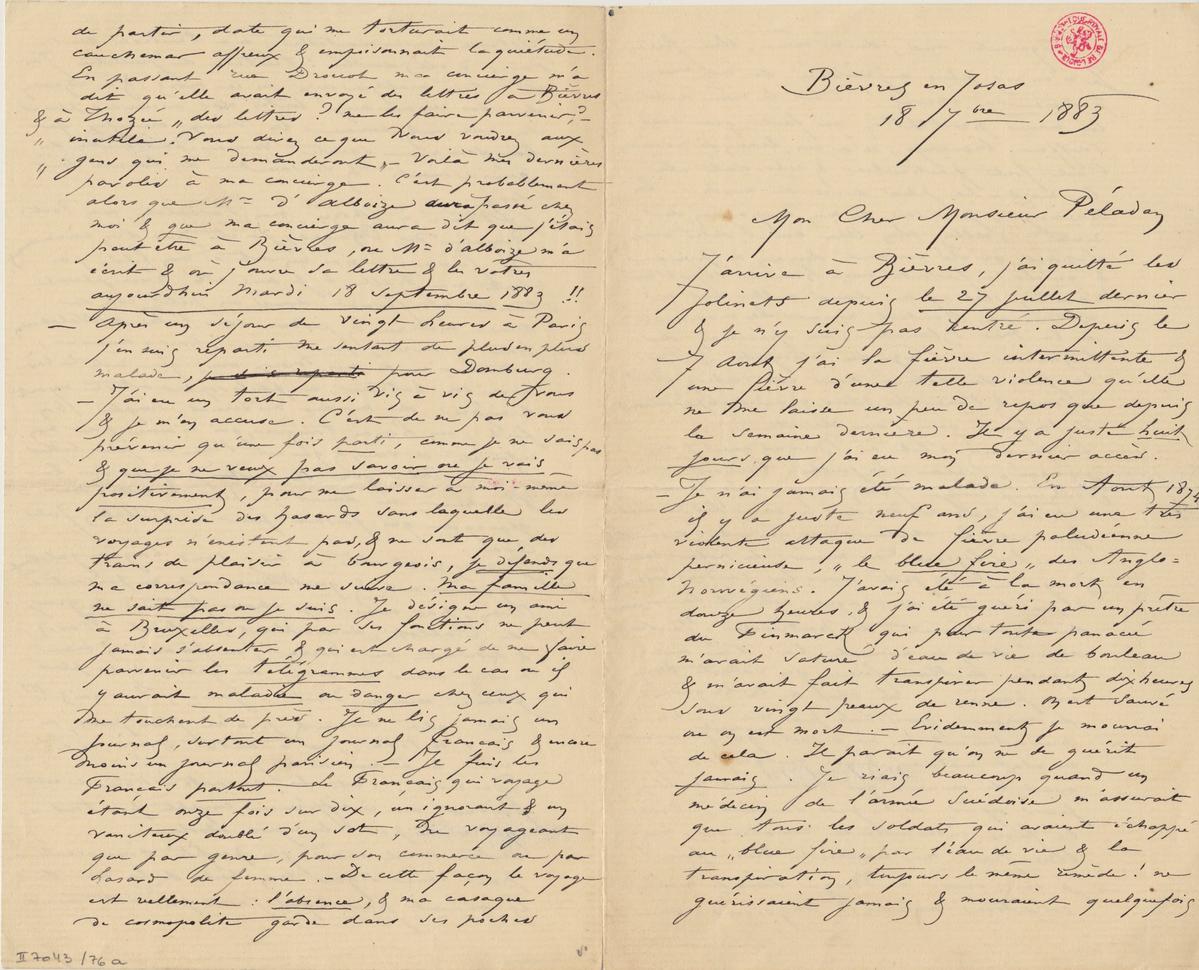 Bièvres en Josas
18 7bre 1883
Mon Cher Monsieur Péladan
J'arrive à Bièvres, j'ai quitté les
Jolinets depuis le 27 juillet dernier
& je n'y suis pas rentré. Depuis le
7 Aout j'ai la fièvre intermittente &
une fièvre d'une telle violence qu'elle
ne me laisse un peu de repos que depuis
la semaine dernière. Il y a juste huit
jours que j'ai eu mon dernier accès.
– Je n'ai jamais été malade. En Aout 1874
il y a juste neuf ans, j'ai eu une très
violente attaque de fièvre paludéenne
pernicieuse, „le blue fire„ des Anglo-
Norwégiens. J'avais été à la mort en
douze heures, & j'ai été guéri par un prêtre
du Finmarck qui pour toute panacée
m'avait saturé d'eau de vie de bouleau
& m'avait fait transpirer pendant dix heures
sous vingt peaux de renne. On est sauvé
ou on est mort. – Evidemment je mourrai
de cela. Il parait qu'on ne guérit
jamais. Je riais beaucoup quand un
médecin de l'armée suédoise m'assurait
que tous les soldats qui avaient échappé
au „blue fire„ par l'eau de vie & la
transpiration, toujours le même remède! ne
guérissaient jamais & mouraient quelquefois
de partir, date qui me torturait comme un
cauchemar affreux & empoisonnait la quiétude.
En passant rue Drouot ma concierge m'a
dit qu'elle avait envoyé des lettres à Bièvres
& à Thozée „des lettres? me les faire parvenir?–
„ inutile. Vous direz ce que vous voudrez aux
„ gens qui me demanderont„– Voilà mes dernières
paroles à ma concierge. C'est probablement
alors que Me d'Alboize aura passé chez
moi & que ma concierge aura dit que j'étais
peut être à Bièvres, ou Me d'alboize m'a
écrit & où j'ouvre sa lettre & les vôtres
aujourdhui Mardi 18 Septembre 1883 !!
– Après un séjour de vingt heures à Paris
j'en suis reparti me sentant de plus en plus
malade, pour Domburg.
– J'ai eu un tort aussi vis à vis de vous
& je m'en accuse. C'est de ne pas vous
prévenir qu'une fois parti, comme je ne sais pas
& que je ne veux pas savoir ou je vais
positivement, pour me laisser à moi-même
la surprise des hasards sans laquelle les
voyages n'existent pas, & ne sont que des
trains de plaisir à bourgeois, je défends que
ma correspondance me suive. Ma famille
ne sait pas ou je suis. Je désigne un ami
à Bruxelles, qui par ses fonctions ne peut
jamais s'absenter & qui est chargé de me faire
parvenir les télégrammes dans le cas ou il
y aurait maladie ou danger chez ceux qui
me touchent de près. Je ne lis jamais un
journal, surtout un journal Français & encore
moins un journal parisien. – Je fuis les
Français partout. Le Français qui voyage
étant onze fois sur dix, un ignorant & un
vaniteux doublé d'un sot, ne voyageant
que par genre, pour son commerce ou par
hasard de femme. – De cette façon le voyage
est réellement: l'absence, & ma casaque
de cosmopolite garde dans ses poches
II 7043 /76 a
v°